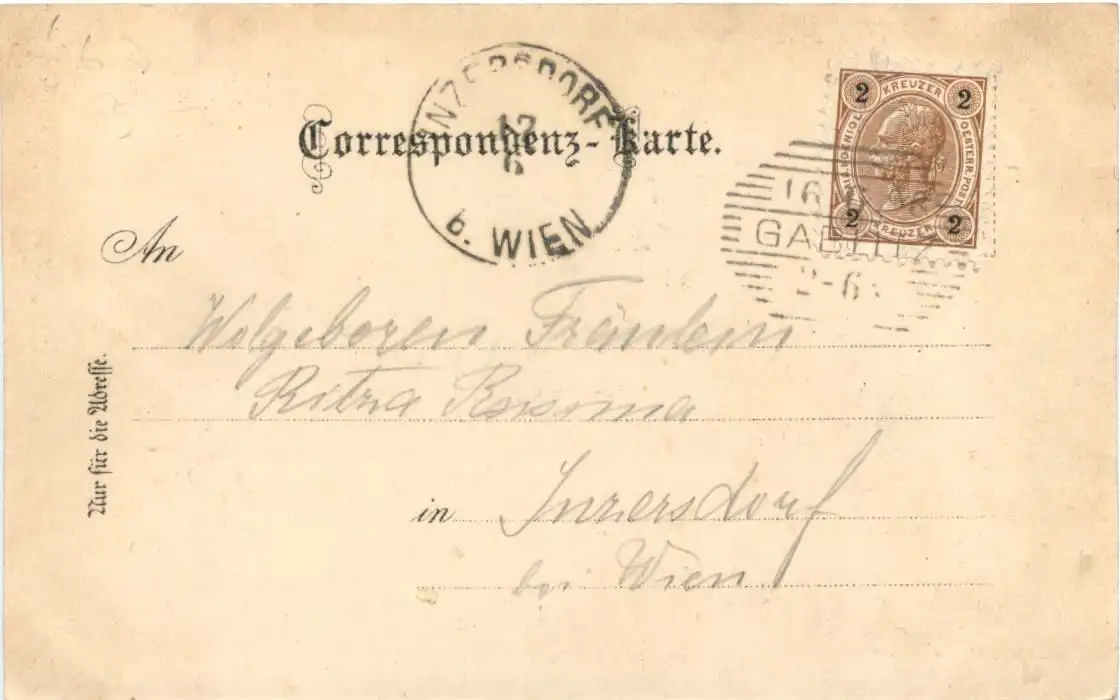 Correspondenz-Karte.
INZERSDORF
17
6
b. WIEN
2 KREUZER 2
OESTERR. POST
2 KREUZER 2
16
GABLITZ
-6
An
Wolgeboren Fräulein
Rosina
in Inzersdorf
bei Wien
Nur für die Adresse.